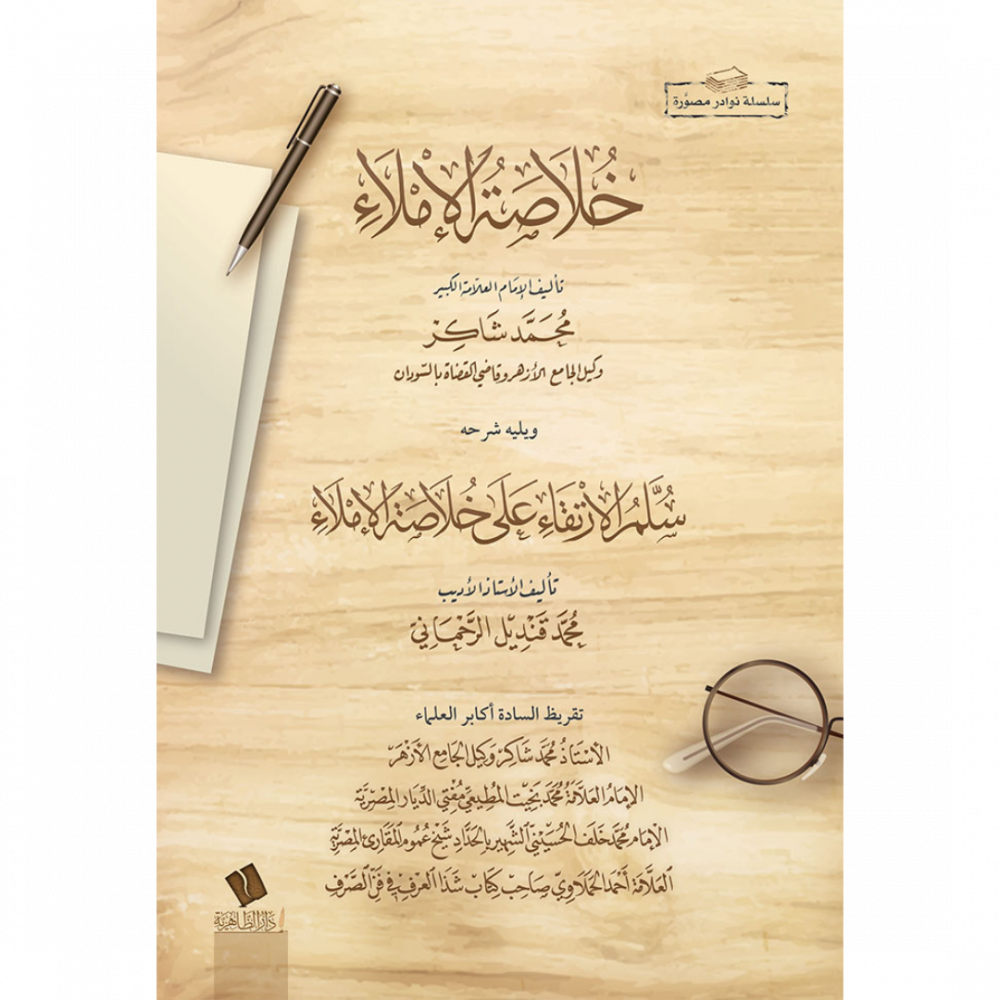 سلسلة نوادر مصورة
خُلَاصَةُ الإِمْلَاءِ
تأليف الإمام العلامة الكبير
مُحَمَّد شَاكِرْ
وكيل الجامع الأزهر وقاضي القضاة بالسودان
ويليه شرحه
سُلَّمُ الِارْتِقَاءِ عَلَى خُلَاصَةِ الإِمْلَاءِ
تأليف الأستاذ الأديب
مُحَمَّد قَنْدِيل الرَّحْمَانِيّ
تقريظ السادة أكابر العلماء
الأُسْتَاذُ مُحَمَّد شَاكِرْ وَكِيل الجَامِع الأَزْهَر
الإِمَامُ العَلَّامَةُ مُحَمَّد بَخِيْت المُطِيعِي مُفْتِي الدِّيَار المِصْرِيَّة
الإِمَام مُحَمَّد خَلَف الحُسَيْنِيّ الشَّهِير بِالحَدَّاد شَيْخ عُمُوم المَقَارِئ المِصْرِيَّة
العَلَّامَة أَحْمَد الحَمَلَاوِيّ صَاحِب كِتَاب شَذَا العَرْف فِي فَنِّ الصَّرْف
دَارُ الظَّاهِرِيَّة